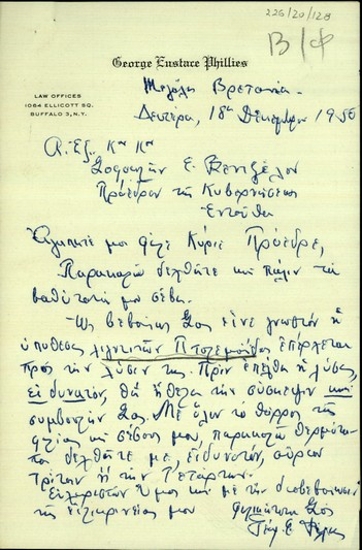 226/20/128
B/φ
George Eustace Phillies
LAW OFFICES
1064 ELLICOTT SQ.
BUFFALO 3, N.Y.
Μεγάλη Βρεταννία.
Δευτέρα, 18η Δεκεμβρίου 1950
Α. Εξ. Κον Κον
Σοφοκλήν Ε. Βενιζέλον
Πρόεδρον της Κυβερνήσεως
Ενταύθα
Αγαπητέ μοι φίλε Κύριε Πρόεδρε,
Παρακαλώ δεχθήτε και πάλιν τα
βαθύτατά μου σέβη.
Ως βεβαίως Σας είνε γνωστόν η
υπόθεσις λιγνιτών Πτολεμαΐδος επέρχεται
προς την λύσιν της. Πριν επέλθη η λύσις,
ει δυνατόν, θα ήθελα την σύσκεψιν και
συμβουλήν Σας. Με όλον το θάρρος της
φιλίας και σέβους μου, παρακαλώ θερμότα-
τα δεχθήτε με, ει δυνατόν, αύριον
Τρίτην ή την Τετάρτην.
Ευχαριστών Υμάς και με την διαβεβαίωσιν
της ειλικρινείας μου
Φιλικώτατα Σας
Γεώρ. Ε. Φίλης